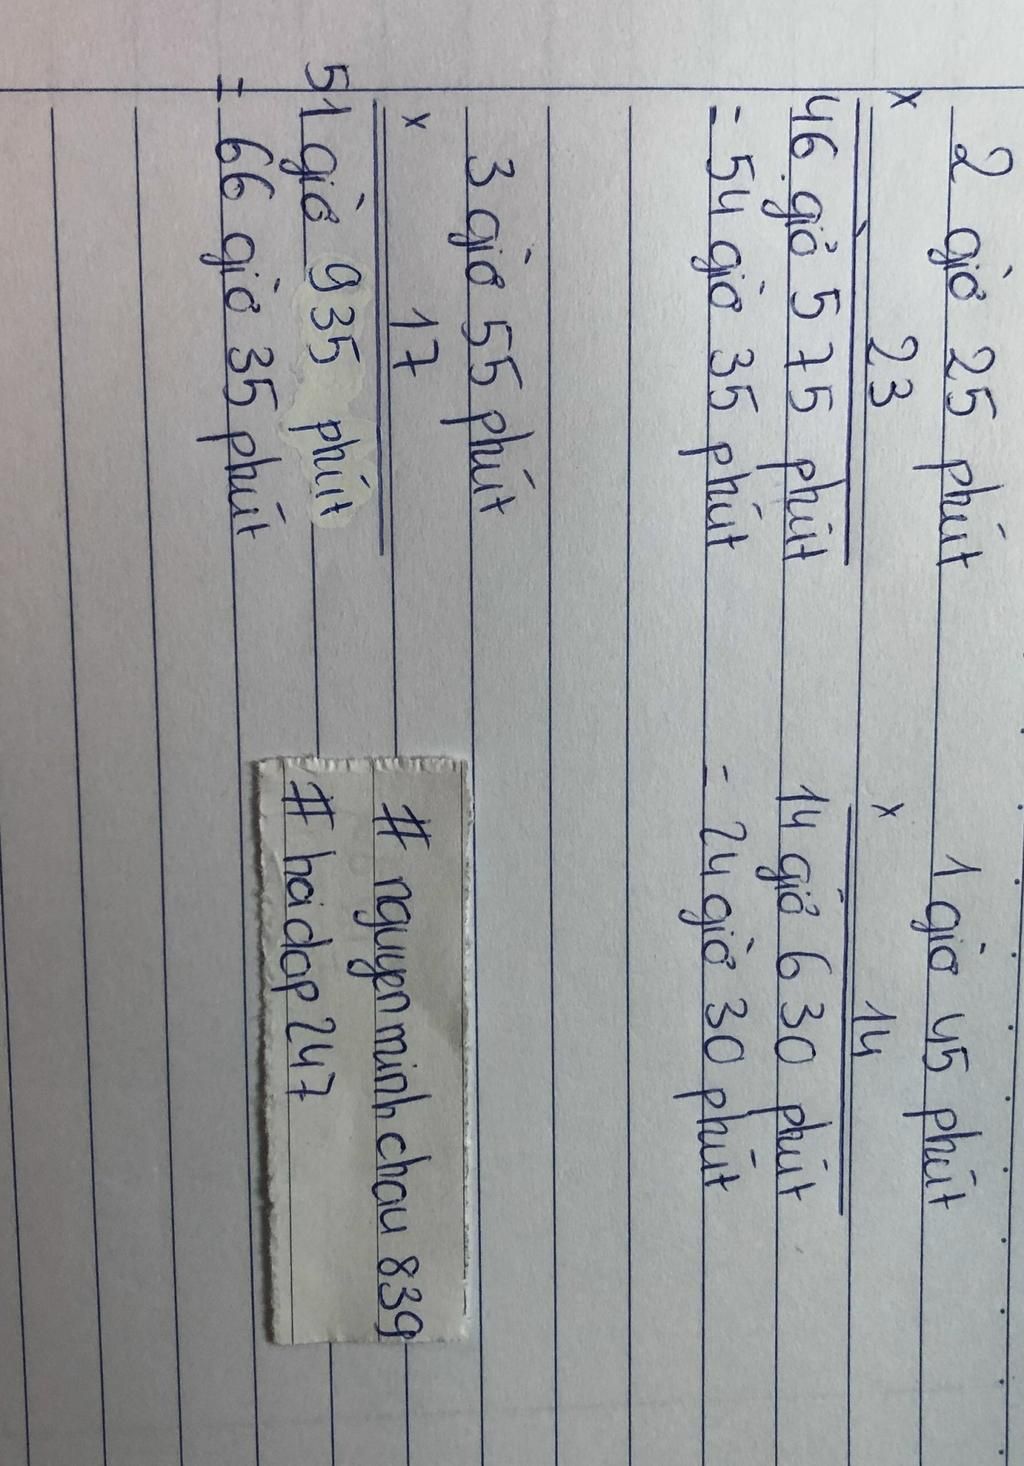 2 giờ 25 phút
x 23
46 giờ 575 phút
= 54 giờ 35 phút
1 giờ 45 phút
x 14
14 giờ 630 phút
= 24 giờ 30 phút
3 giờ 55 phút
x 17
51 giờ 935 phút
= 66 giờ 35 phút
# nguyenminhchau839
# hoidap247